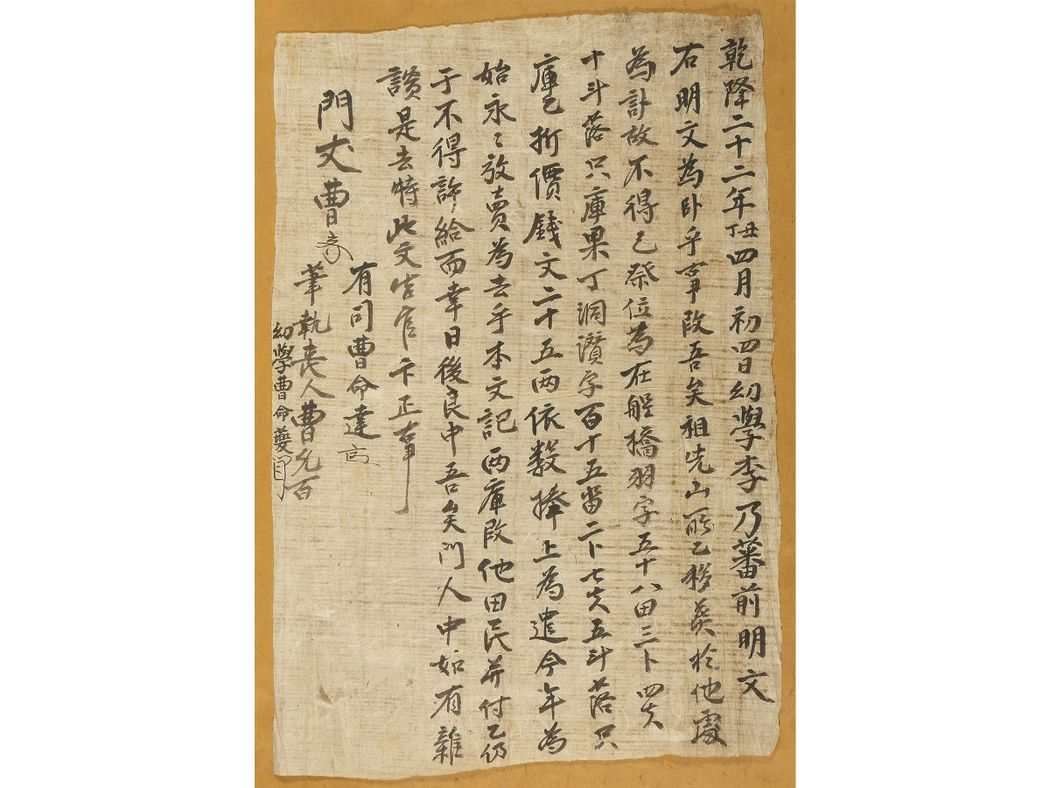 乾隆二十二年丁丑四月初四日幼學李乃蕃前明文
右明文爲臥乎事段吾矣祖先山所乙移葬於他處
爲計故不得已祭位爲在船橋羽字五十八田三卜四夫
十斗落只庫果丁洞讚字百十五畓二卜七夫五斗落只
庫乙折價錢文二十五兩依數捧上爲遣今年爲
始永〻放賣爲去乎本文記兩庫段他田民幷付乙仍
于不得許給而幸日後良中吾矣門人中如有雜
談是去等此文告官卞正事
門丈曹
有司曹命達
筆執喪人曹允百
幼學曹命夔